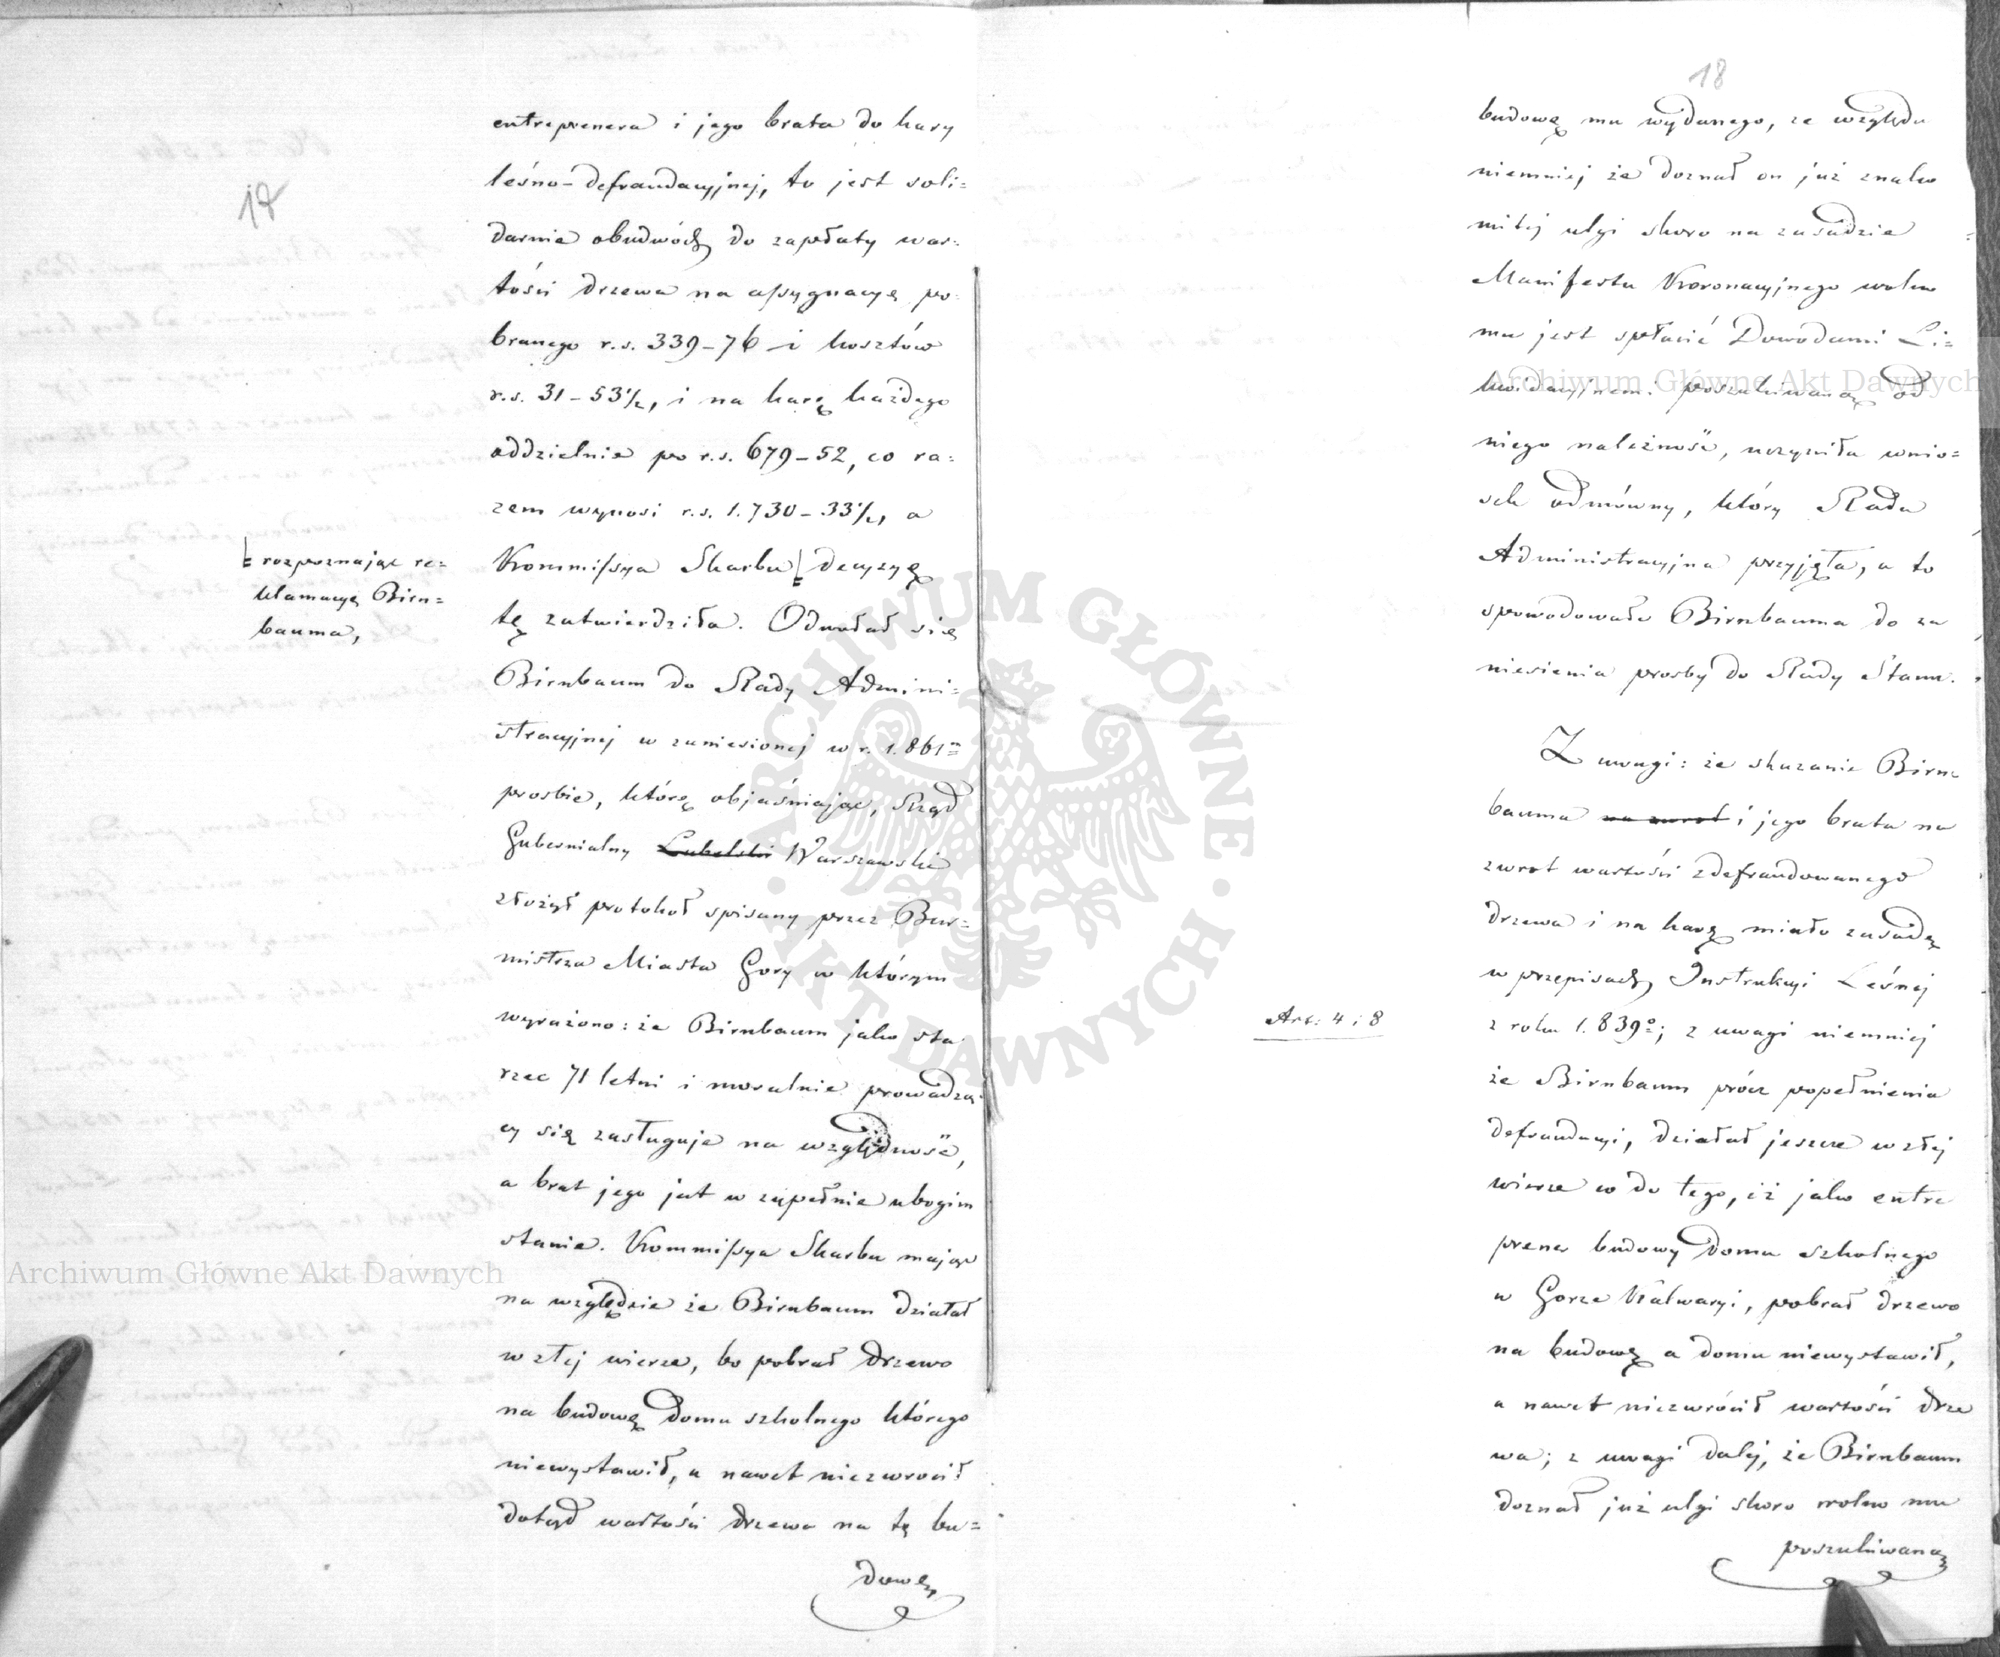 17
entreprenera i jego brata do kary
leśno-defraudacyjnej, to jest soli=
darnie obudwóch do zapłaty war=
tości drzewa na assygnacyę po=
branego r.s. 339-76 i kosztów
r.s. 31-53½, i na karę każdego
oddzielnie po r.s. 679-52, co ra=
zem wynosi r.s. 1.730-33½, a
Kommissya Skarbu decyzyę
rozpoznając re=
klamacyę Birn=
bauma,
tę zatwierdziła. Odwołał się
Birnbaum do Rady Admini=
stracyjnej w zaniesionej w r. 1.861m
prosbie, którą objaśniając, Rząd
Gubernialny Lubelski Warszawski
złożył protokoł spisany przez Bur=
mistrza Miasta Gory w którym
wyrażono: że Birnbaum jako sta
rzec 71 letni i moralnie prowadzą
cy się zasługuje na względność,
a brat jego jest w zupełnie ubogim
stanie. Kommissya Skarbu mając
na względzie że Birnbaum działał
w złej wierze, bo pobrał drzewo
na budowę domu szkolnego którego
niewystawił, a nawet niezwrócił
dotąd wartości drzewa na tę bu=
dowę
18
budowę mu wydanego, ze względu
niemniej że doznał on już znako
mitej ulgi skoro na zasadzie
Manifestu Koronacyjnego wolno
mu jest spłacić Dowodami Li=
kwidacyjnemi poszukiwaną od
niego należność, uczyniła wnio=
sek odmówny, który Rada
Administracyjna przyjęła, a to
spowodowało Birnbauma do za
niesienia prosby do Rady Stanu.
Z uwagi: że skazanie Birn=
bauma na zwrot i jego brata na
zwrot wartości zdefraudowanego
drzewa i na karę miało zasadę
w przepisach Instrukcyi Leśnej
Art: 4 i 8
z roku 1.839o; z uwagi niemniej
że Birnbaum prócz popełnienia
defraudacyi, działał jeszcze w złej
wierze co do tego, iż jako entre
prener budowy domu szkolnego
w Gorze Kalwaryi, pobrał drzewo
na budowę a domu niewystawił,
a nawet niezwrócił wartości drze
wa; z uwagi dalej, że Birnbaum
doznał już ulgi skoro wolno mu
poszukiwaną
Archiwum Główne Akt Dawnych
Archiwum Główne Akt Dawnych
ARCHIWUM GŁÓWNE · AKT DAWNYCH ·